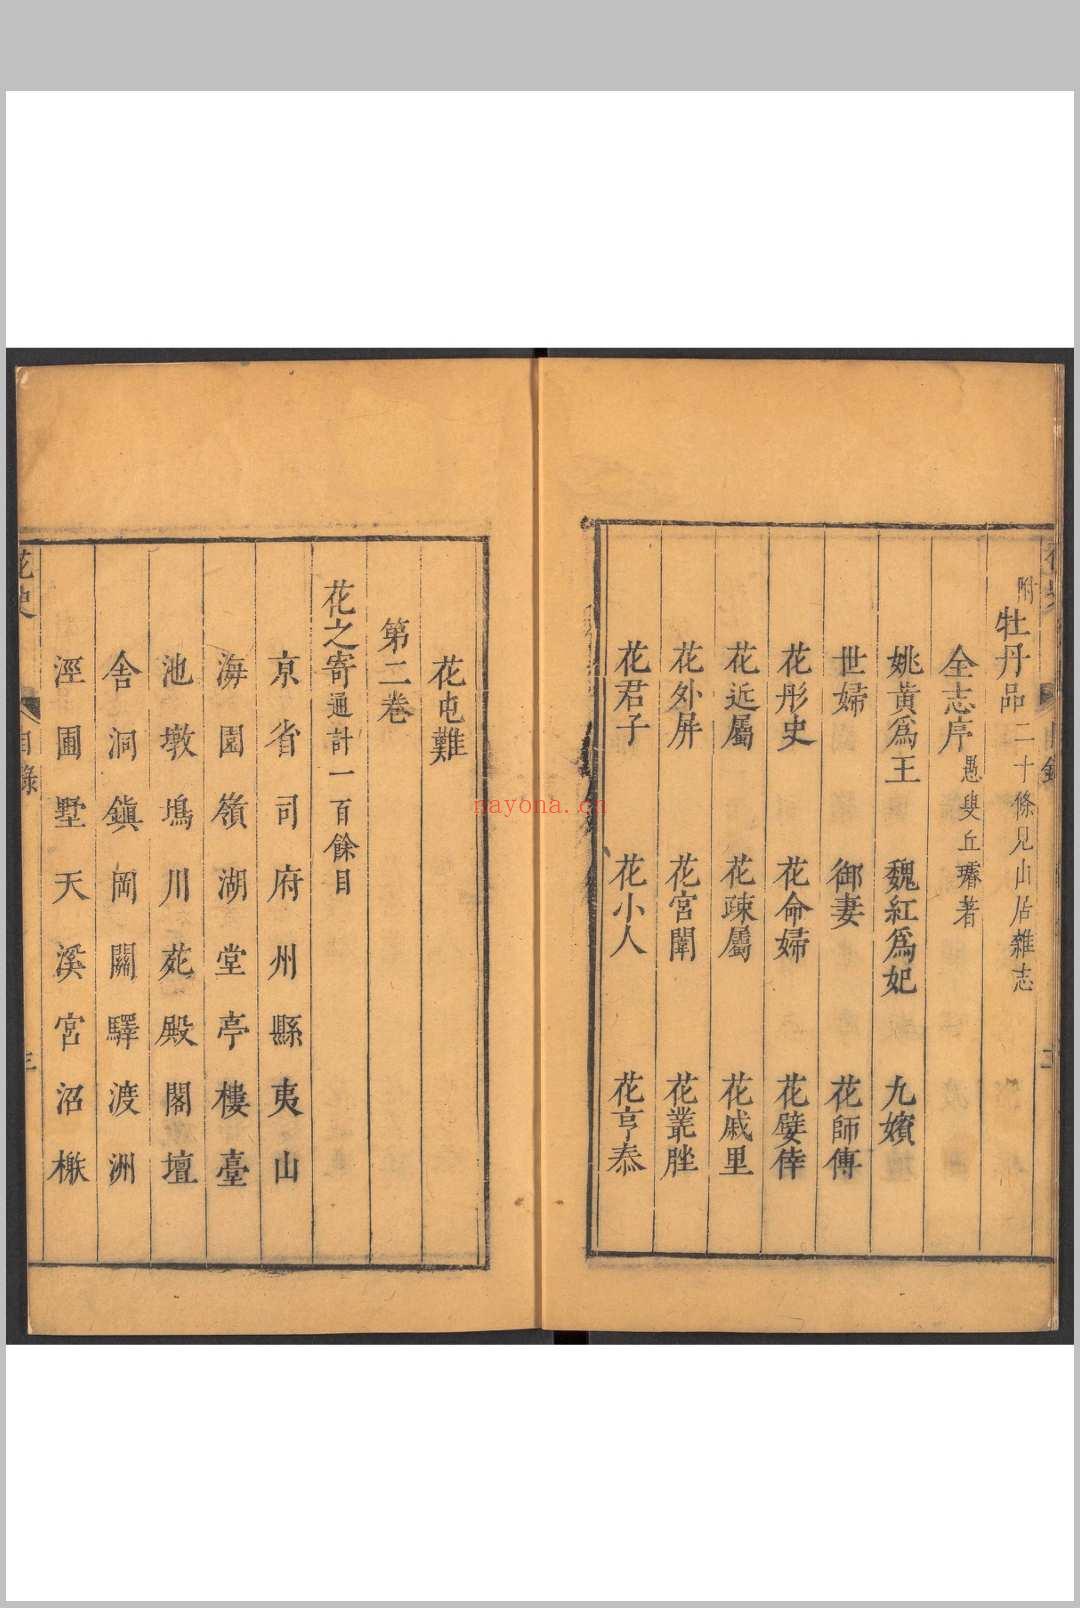 附牡丹品二十條見山居雜志
全志序愚叟丘璿著
姚黃爲王 魏紅爲妃 九嬪
世婦 御妻 花師傅
花彤史 花命婦 花嬖倖
花近屬 花疎屬 花戚里
花外屏 花宮闈 花叢脞
花君子 花小人 花亨泰
花屯難
第二卷
花之寄通計一百餘目
京省司府州縣夷山
海園嶺湖堂亭樓臺
池墩塢川苑殿閣壇
舍洞鎭岡關驛渡洲
涇圃墅天溪宮沼
花史
目錄
三
nayona.cn